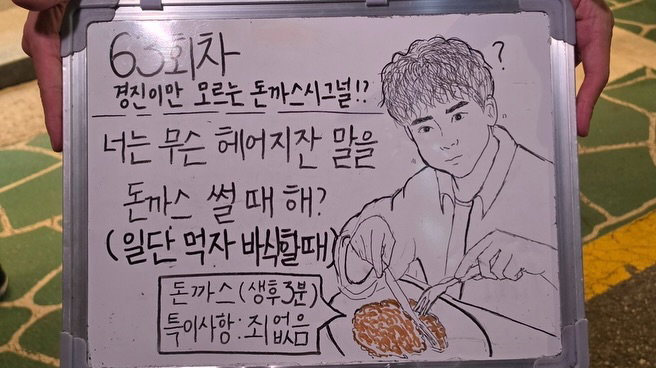 63회차
경진이만 모르는 돈까스시그널!?
너는 무슨 헤어지잔 말을
돈까스 썰 때 해?
(일단 먹자 바삭할때)
돈까스(생후3분)
특이사항: 죄없음
?